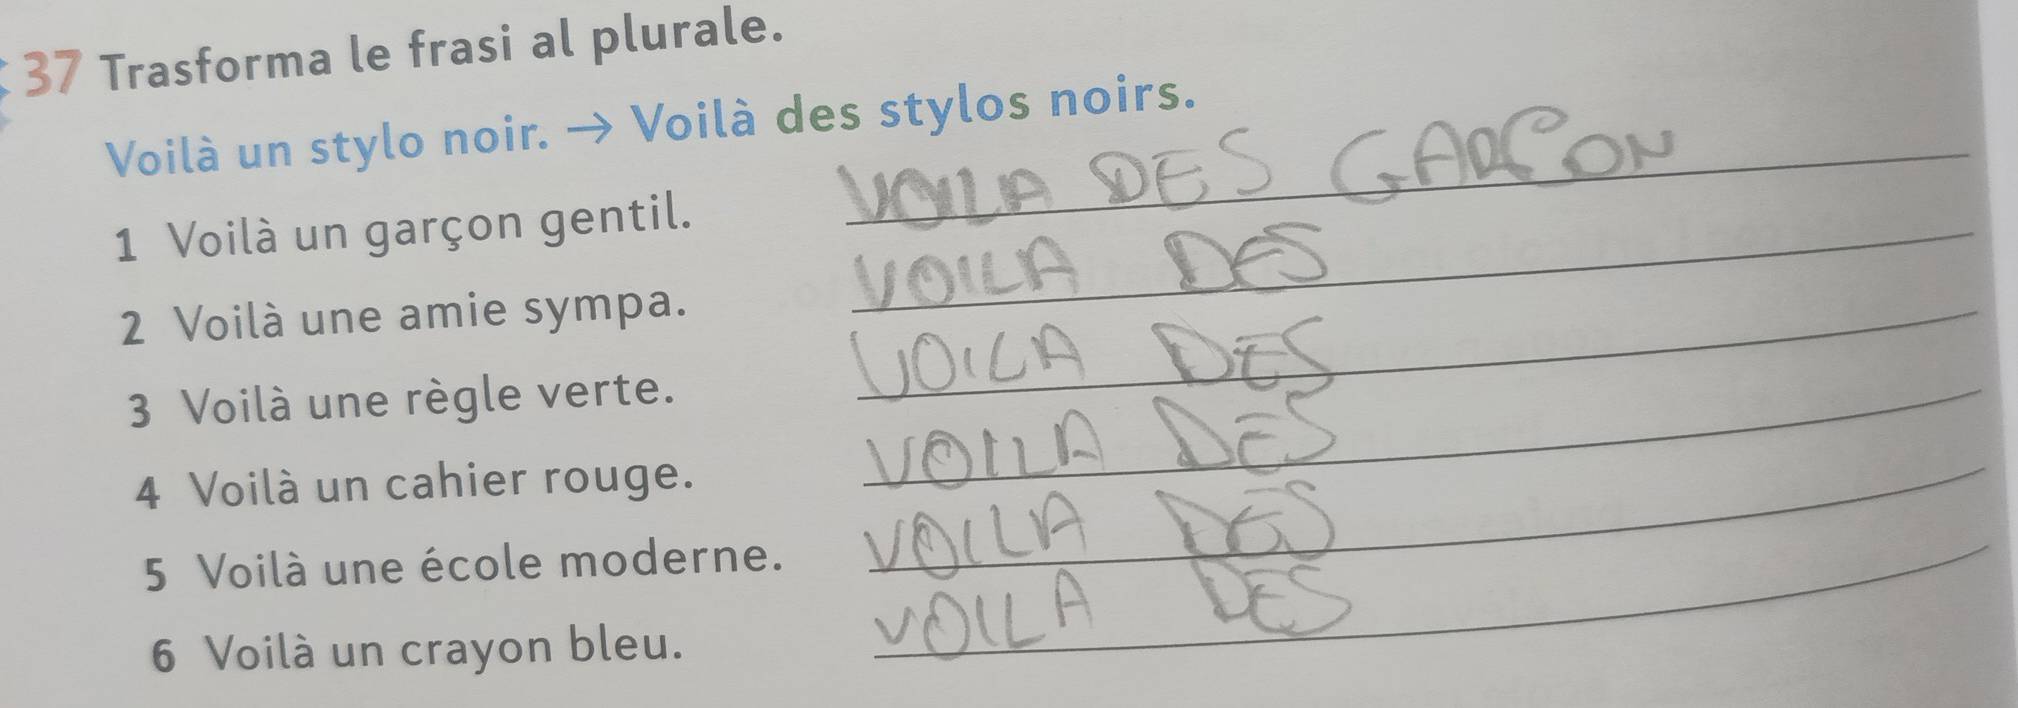 37 Trasforma le frasi al plurale.
Voilà un stylo noir. → Voilà des stylos noirs.
1 Voilà un garçon gentil. VOILA DES GARÇON
2 Voilà une amie sympa. VOILA DES
3 Voilà une règle verte. VOILA DES
4 Voilà un cahier rouge. VOILA DES
5 Voilà une école moderne. VOILA DES
6 Voilà un crayon bleu. VOILA DES